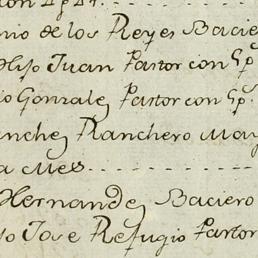 nio de los Reyes Baciero
Hijo Juan Pastor con Gp.
io Gonzalez Pastor con Gp.
anchez Ranchero May
a Mes
Hernandez Baciero
o Jose Refugio Pastor